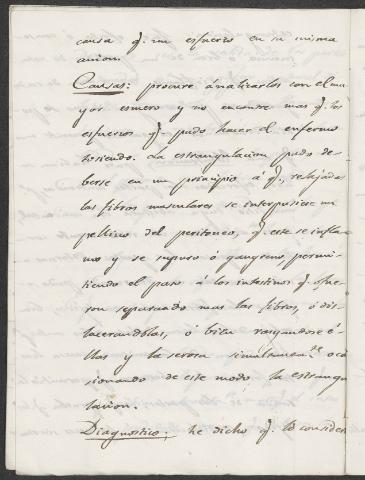 causa q. un esfuerzo en su misma
accion.
Causas: procuré ánalizarlos con el ma
yor esmero y no encontré mas q. los
esfuerzos q. pudo hacer el enfermo
tosiendo. La estrangulacion pudo de-
berse en un principio á q., relajadas
las fibras musculares se interpusiese un
pellizco del peritoneo, q. este se infla-
mó y se supuró ó gangrenó, permi-
tiendo el paso á los intestinos q. fue-
ron separando mas las fibras, ó dis-
lacerandolas, ó bien rasgandose é-
llas y la serosa simultaneam.te oca
sionando de este modo la estrangu
lacion.
Diagnostico; he dicho q. lo consider